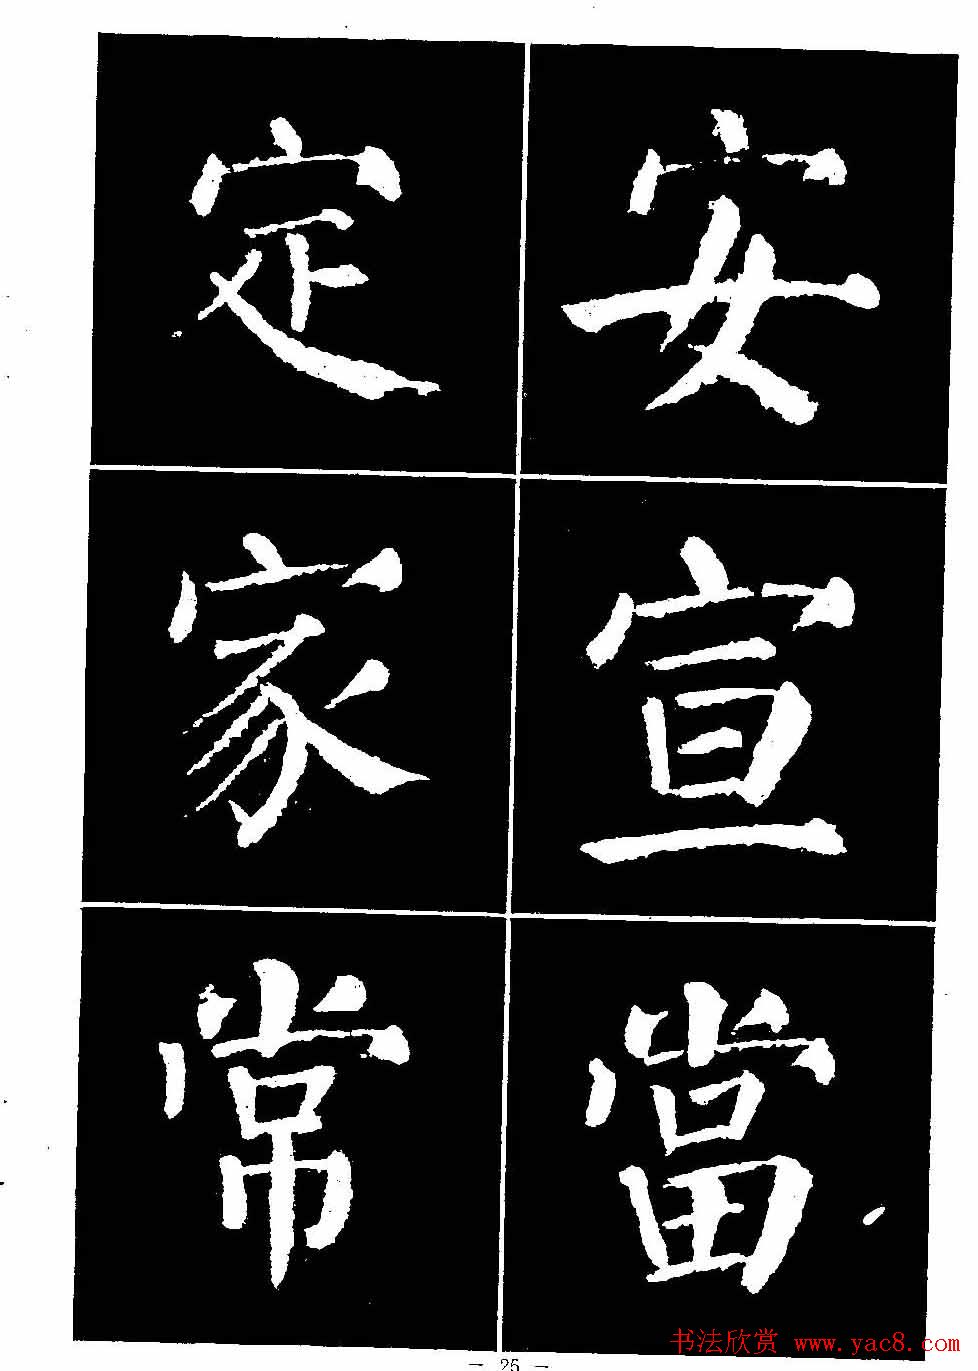 安
宣
當
定
家
常
书法欣赏 www.yac8.com
— 25 —